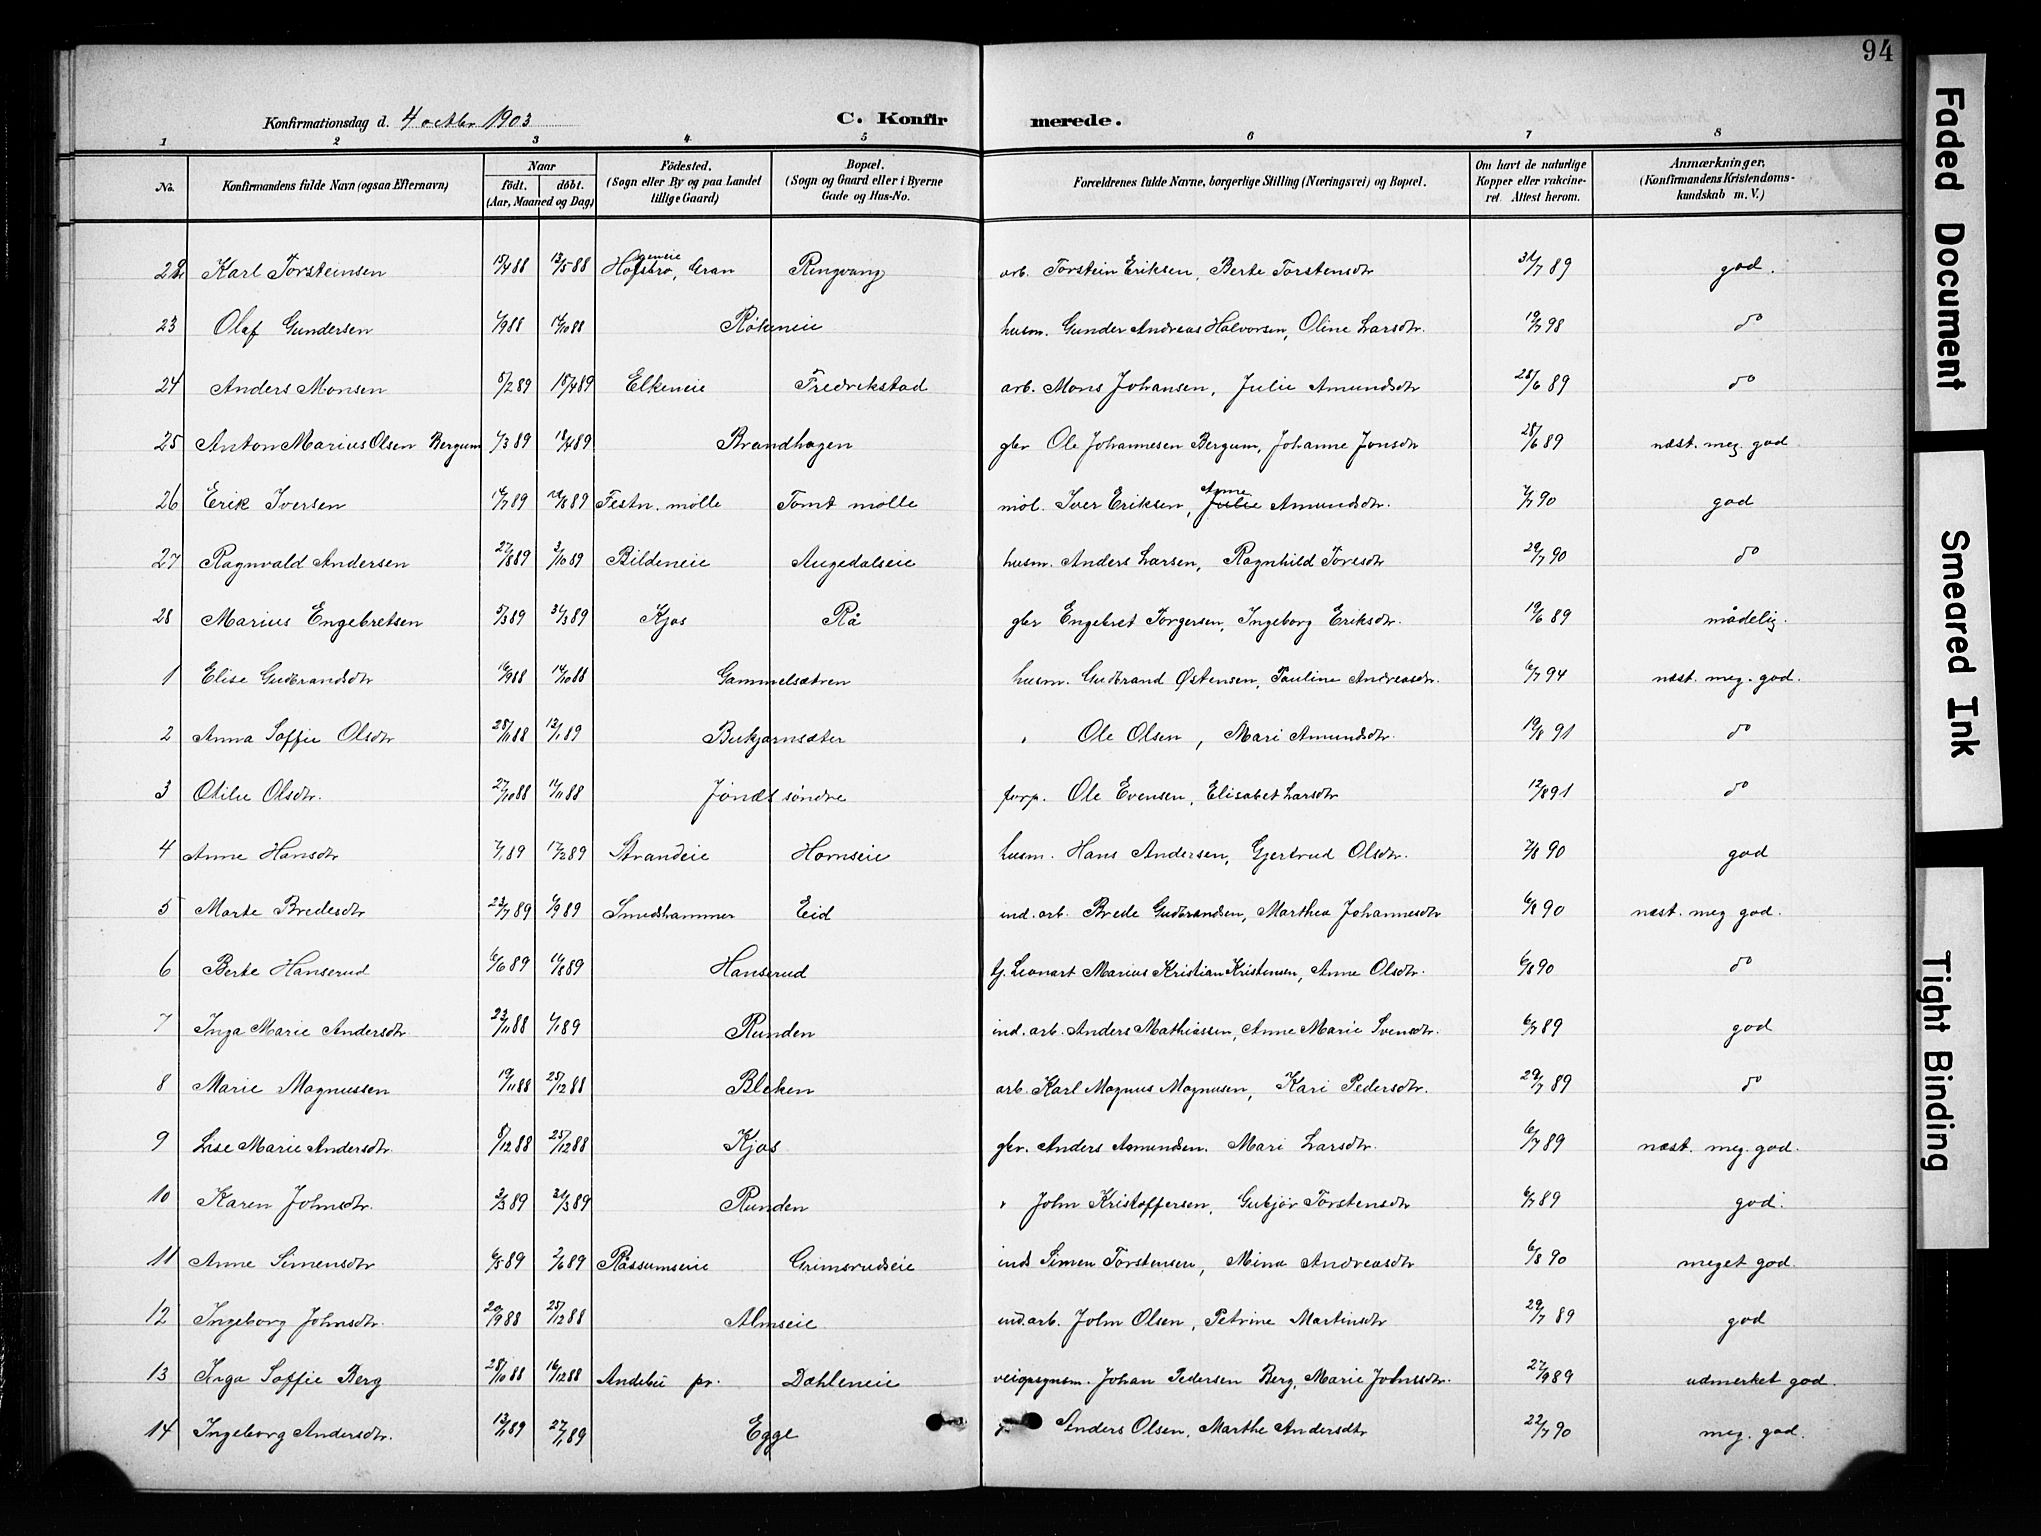 94
Konfirmationsdag d. 4 octbr 1903 C. Konfirmerede.
1 2 3 4 5 6 7 8
No. Konfirmandens fulde Navn (ogsaa Efternavn) Naar födt. döbt. (Aar, Maaned og Dag) Födested. (Sogn eller By og paa Landet tillige Gaard) Bopæl. (Sogn og Gaard eller i Byerne Gade og Hus-No. Forældrenes fulde Navne, borgerlige Stilling (Næringsvei) og Bopæl. Om havt de naturlige Kopper eller vakcineret. Attest herom. Anmærkninger. (Konfirmandens Kristendomskundskab m. V.)
22. Karl Torsteinsen 15/4 88 13/5 88 Hofsbro, Gran Ringvang arb. Torstein Eriksen, Berte Torstensdtr 31/7 89 god.
23 Olaf Gundersen 1/9 88 14/10 88 Røkeneie husm. Gunder Andreas Halvorsen, Oline Larsdtr. 19/7 98 do
24 Anders Monsen 5/2 89 15/4 89 Elkeneie Fredrikstad arb. Mons Johansen, Julie Amundsdtr 28/6 89 do
25 Anton Marius Olsen Bergum 1/3 89 19/4 89 Brandhagen gbr Ole Johannesen Bergum, Johanne Jonsdtr 28/6 89 næst. meg. god
26 Erik Iversen 14/7 89 18/8 89 Festn. mølle Tomt mølle møl. Iver Eriksen, Anne Amundsdtr. 7/7 90 god
27 Ragnvald Andersen 27/8 89 3/10 89 Bildeneie Augedalseie husm. Anders Larsen, Ragnhild Toresdtr 29/7 90 do
28 Marius Engebretsen 5/3 89 31/3 89 Kjos Rå gbr Engebret Torgersen, Ingeborg Eriksdtr. 19/6 89 mådelig.
1 Elise Gudbrandsdtr 16/9 88 14/10 88 Gammelsætren husm. Gudbrand Østensen, Pauline Andreasdtr. 6/7 94 næst. meg. god.
2 Anna Soffie Olsdtr 28/11 88 13/1 89 Bukjarnsæter " Ole Olsen, Mari Amundsdtr. 19/8 91 do
3 Otilie Olsdtr. 27/10 88 11/11 88 Jøndl søndre forp. Ole Evensen, Elisabet Larsdtr 12/8 91 do
4 Anne Hansdtr 7/1 89 17/2 89 Strandeie Hornseie husm. Hans Andersen, Gjertrud Olsdtr. 7/8 90 god
5 Marte Bredesdtr 23/7 89 1/9 89 Smedshammer Eid ind. arb. Brede Gudbrandsen, Marthea Johannesdtr 6/8 90 næst. meg god.
6 Berte Hanserud 6/6 89 11/8 89 Hanserud tj. Leonart Marius Kristian Kristensen, Anne Olsdtr. 6/8 90 do
7 Inga Marie Andersdtr 23/11 88 1/1 89 Runden ind. arb. Anders Mathiassen, Anne Marie Svensdtr. 6/7 89 god
8 Marie Magnussen 19/11 88 25/12 88 Bleken arb. Karl Magnus Magnusen, Kari Pedersdtr. 29/7 89 do
9 Lise Marie Andersdtr. 8/12 88 25/12 88 Kjos gbr. Anders Amundsen. Mari Larsdtr. 6/7 89 næst. meg. god.
10 Karen Johnsdtr. 3/3 89 31/3 89 Runden " John Kristoffersen, Gubjør Torstensdtr 6/7 89 god.
11 Anne Simensdtr 6/5 89 2/6 89 Råssumseie Grimsrudseie inds Simen Torstensen, Mina Andreasdtr 6/8 90 meget god.
12 Ingeborg Johnsdtr. 20/9 88 25/12 88 Almseie ind. arb. John Olsen, Petrine Martinsdtr 29/7 89 god
13 Inga Soffie Berg 28/10 88 16/12 88 Andebu pr. Dæhleneie veiopsynsm. Johan Pedersen Berg, Marie Johnsdtr. 27/9 89 udmerket god.
14 Ingeborg Andersdtr. 13/1 89 27/1 89 Egge Anders Olsen, Marthe Andersdtr 22/7 90 meg. god.
Faded Document
Smeared Ink
Tight Binding